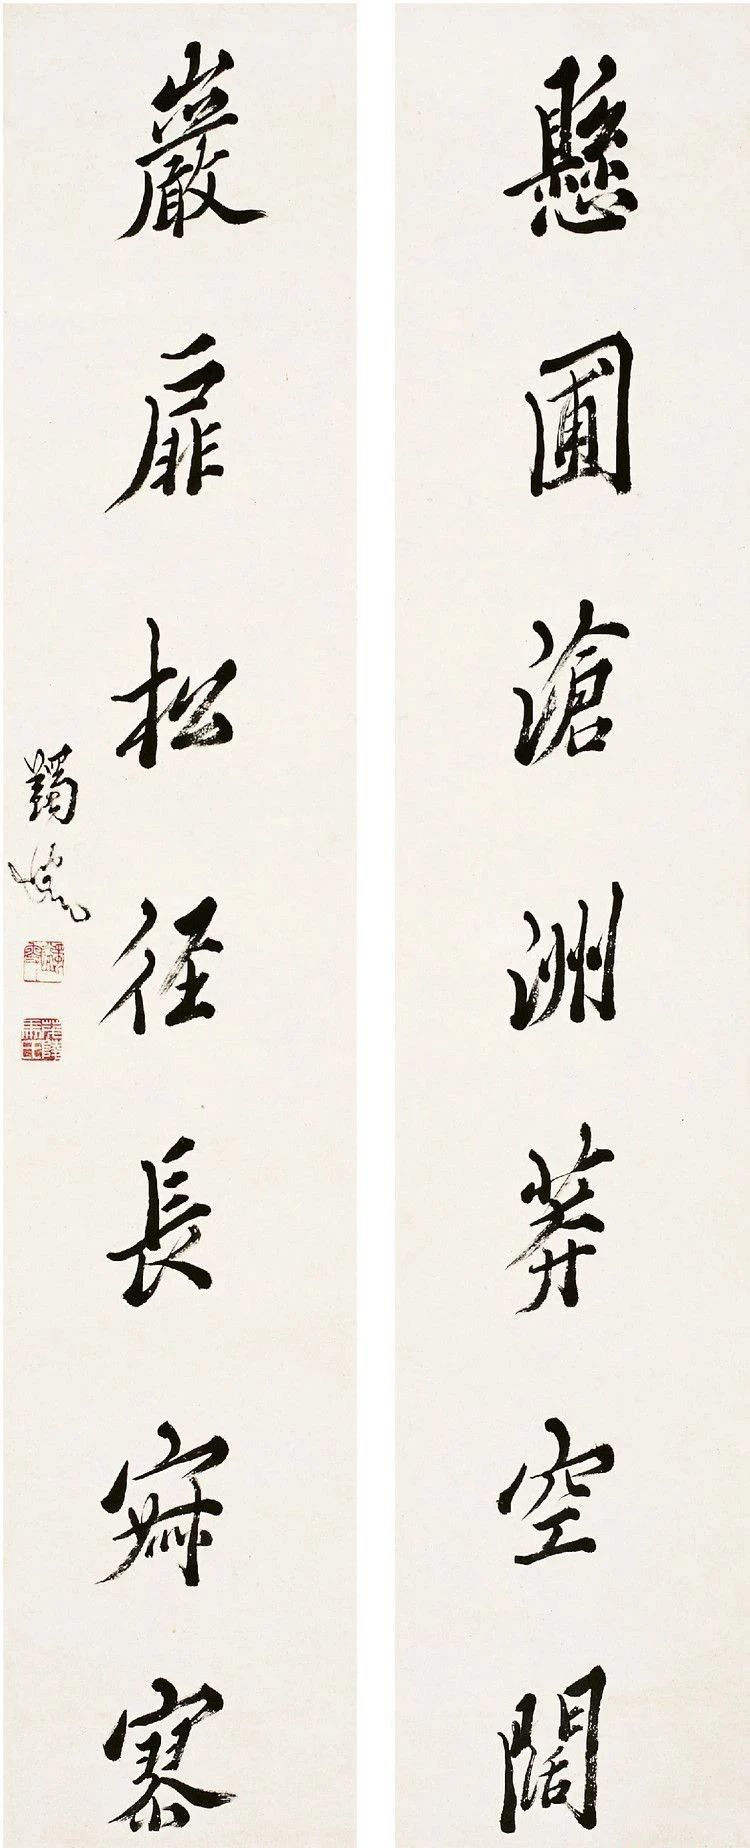 懸圃滄洲莽空闊
巖扉松徑長寂寥
蠲叟